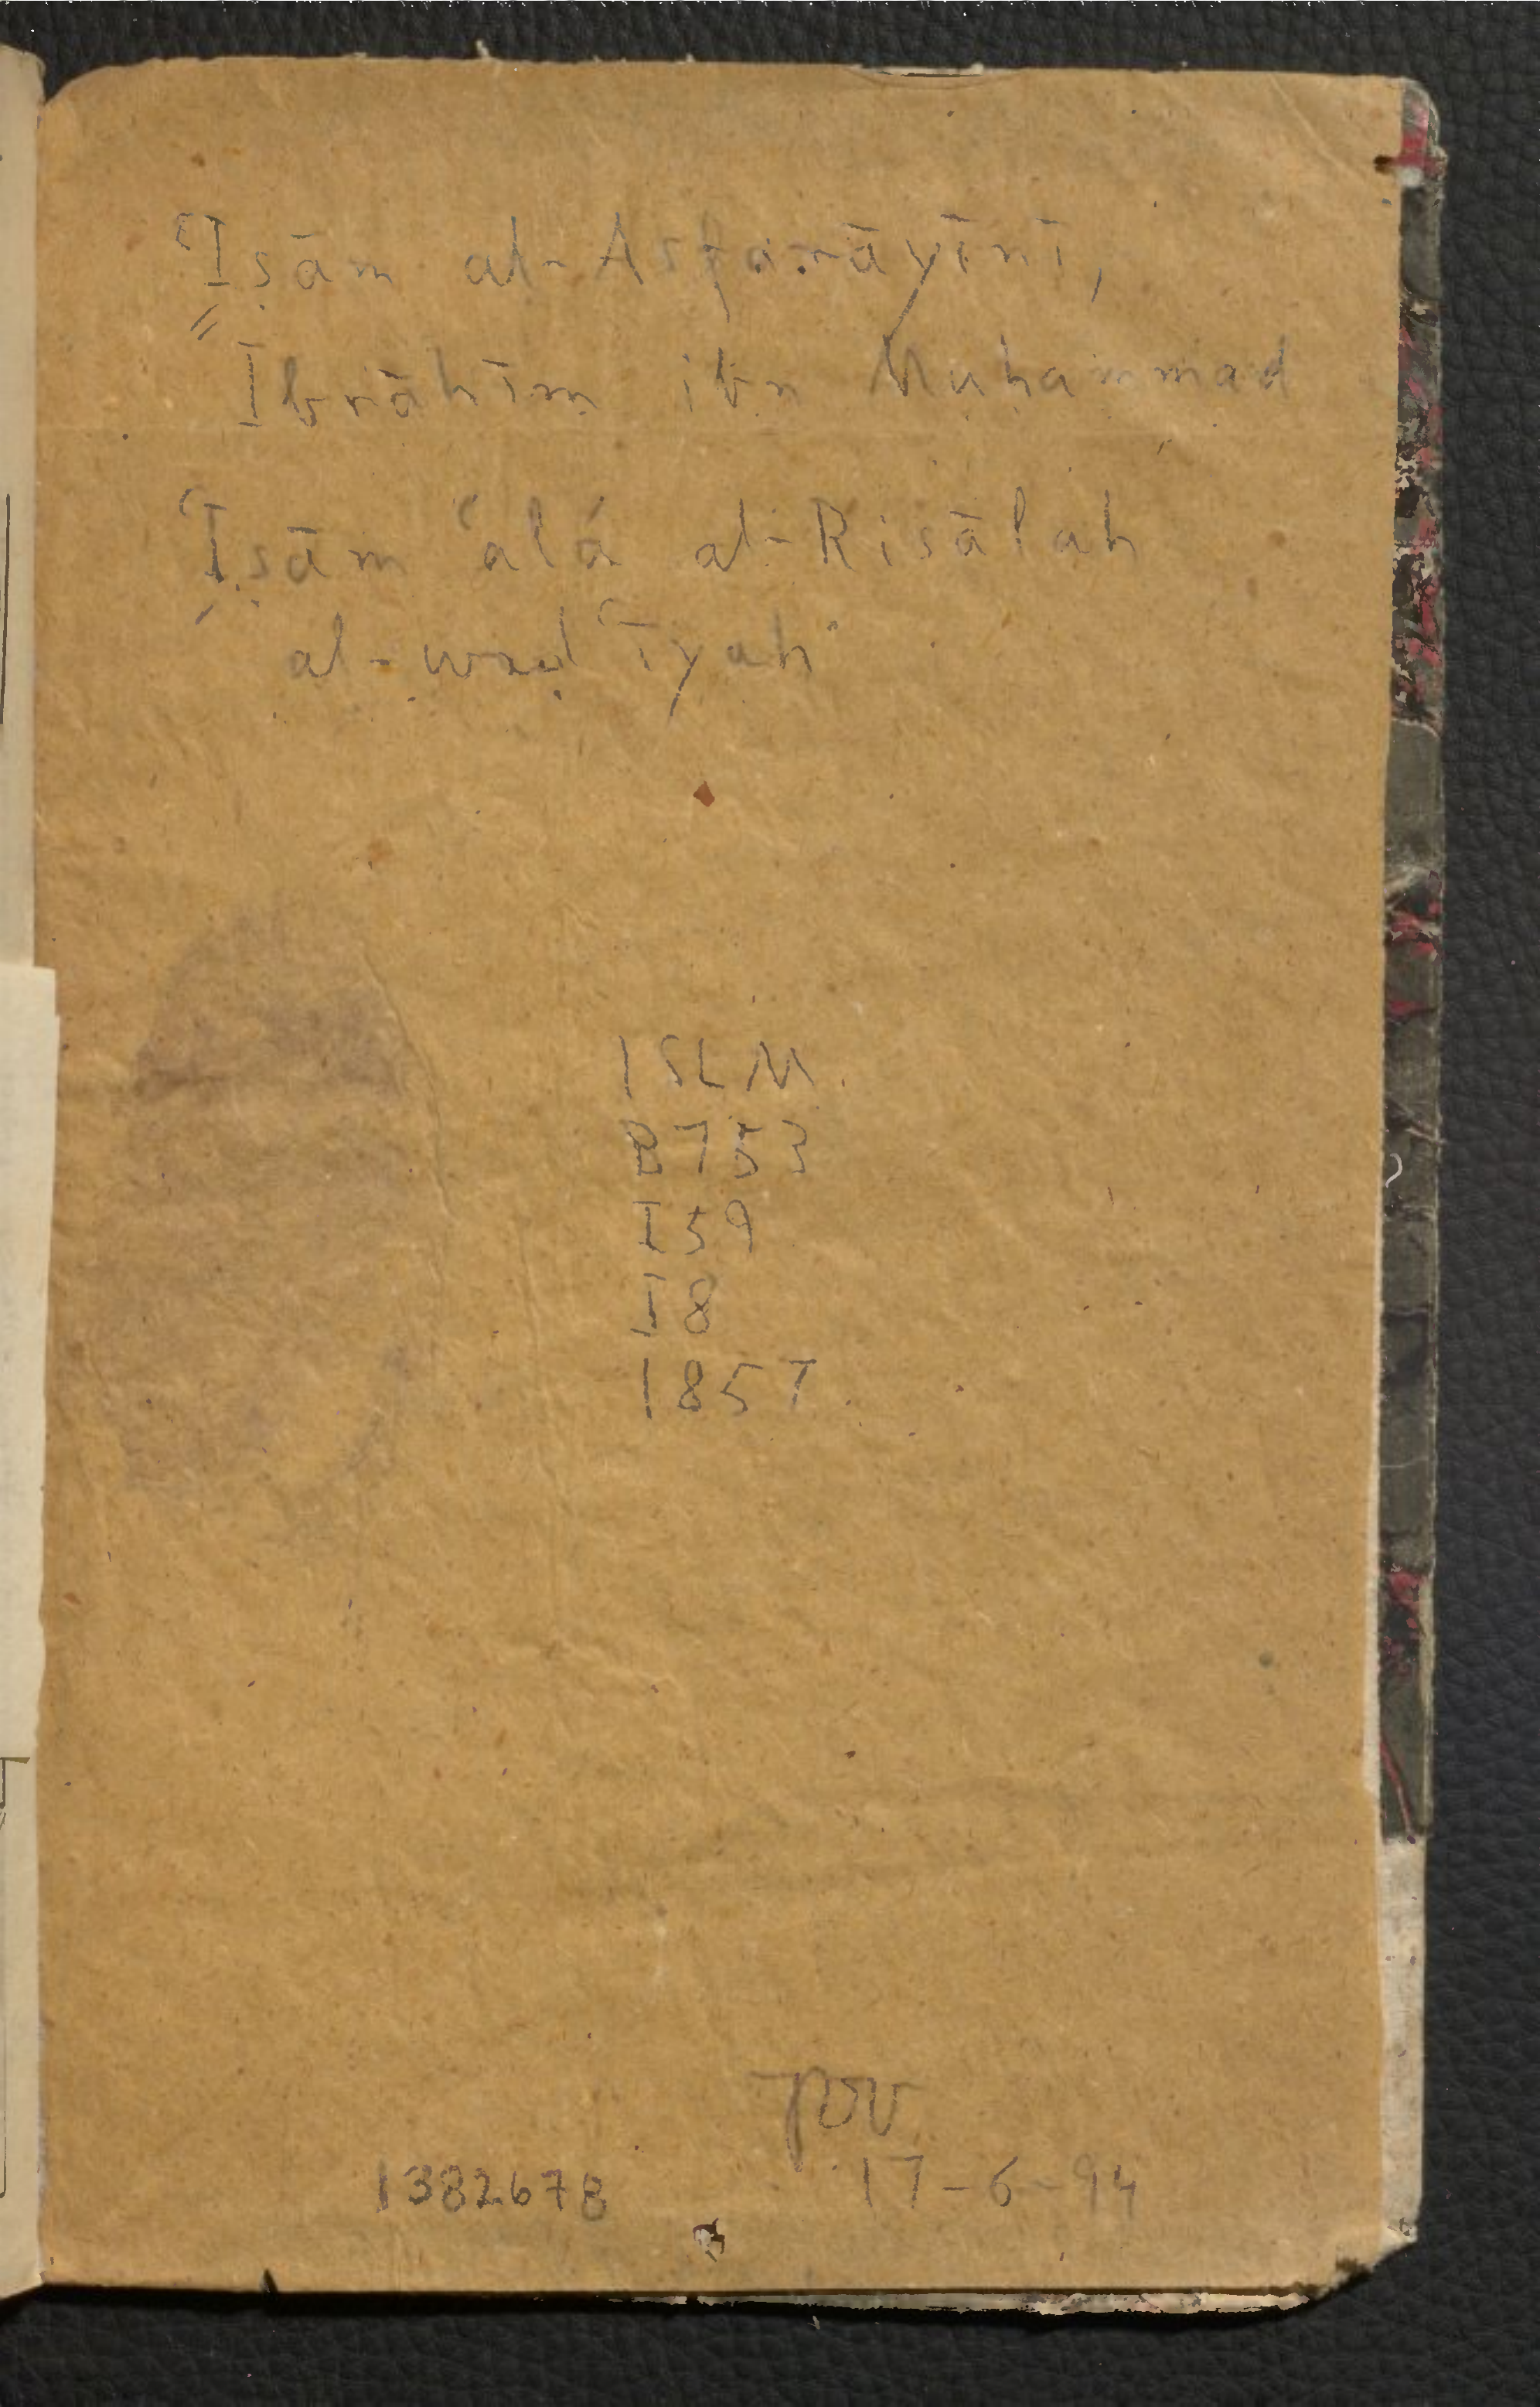 ʿIṣām al-Asfarāyīnī,
Ibrāhīm ibn Muḥammad
ʿIṣām ʿalá al-Risālah
al-waḍʿīyah
ISLM
B753
I59
I8
1857
1382678
17-6-94